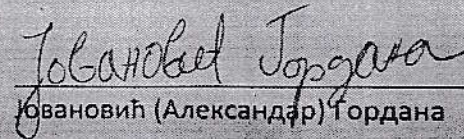 Јовановић Гордана
Јовановић (Александар) Гордана